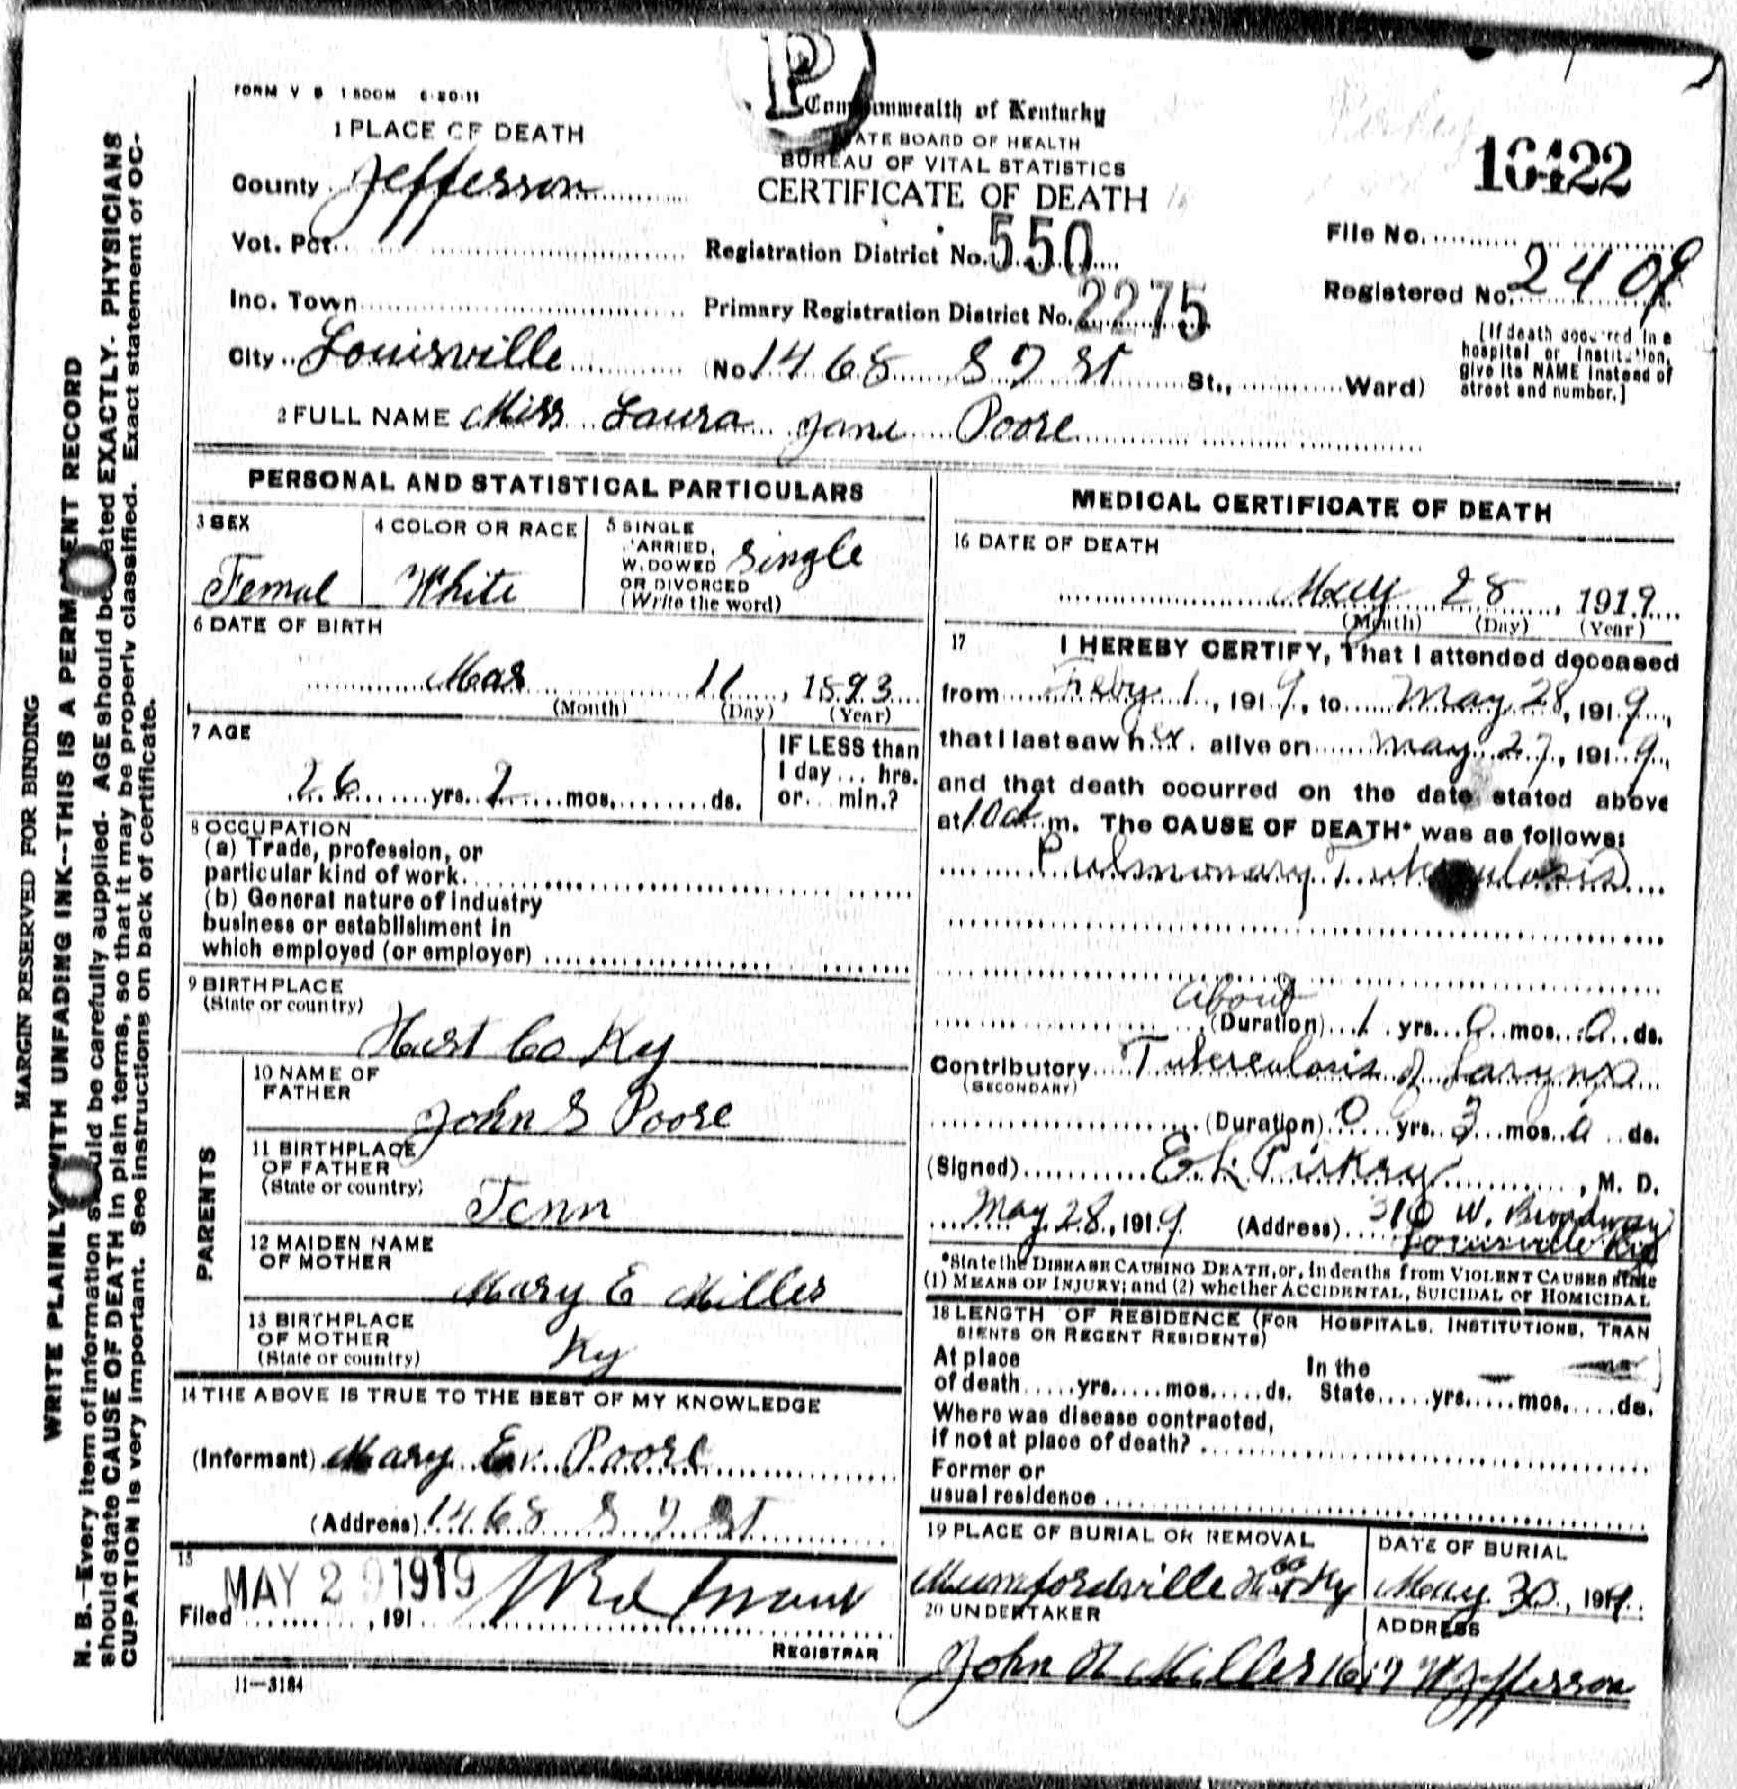 FORM V S 1 500M 6-20-11
1 PLACE OF DEATH
Commonwealth of Kentucky
STATE BOARD OF HEALTH
BUREAU OF VITAL STATISTICS
CERTIFICATE OF DEATH
16422
County Jefferson
Vot. Pct.
Registration District No. 550
File No.
Inc. Town
Primary Registration District No. 2275
Registered No. 2409
City Louisville
(No 1468 S 7 St St., Ward)
[If death occurred in a
hospital or institution,
give its NAME instead of
street and number.]
2 FULL NAME Miss Laura Jane Poore
PERSONAL AND STATISTICAL PARTICULARS
3 SEX
Femal
4 COLOR OR RACE
White
5 SINGLE
MARRIED,
WIDOWED
OR DIVORCED
(Write the word)
Single
6 DATE OF BIRTH
Mar 11, 1893
(Month) (Day) (Year)
7 AGE
26 yrs. 2 mos. ds.
IF LESS than
1 day ... hrs.
or ... min.?
8 OCCUPATION
(a) Trade, profession, or
particular kind of work.
(b) General nature of industry
business or establishment in
which employed (or employer)
9 BIRTHPLACE
(State or country)
Hart Co Ky
PARENTS
10 NAME OF
FATHER
John S Poore
11 BIRTHPLACE
OF FATHER
(State or country)
Tenn
12 MAIDEN NAME
OF MOTHER
Mary E Miller
13 BIRTHPLACE
OF MOTHER
(State or country)
Ky
14 THE ABOVE IS TRUE TO THE BEST OF MY KNOWLEDGE
(Informant) Mary E. Poore
(Address) 1468 S 7 St
15
Filed MAY 29 1919, 191
REGISTRAR
11-3184
MEDICAL CERTIFICATE OF DEATH
16 DATE OF DEATH
May 28, 1919
(Month) (Day) (Year)
17 I HEREBY CERTIFY, That I attended deceased
from Feby 1, 1919, to May 28, 1919,
that I last saw her alive on May 27, 1919,
and that death occurred on the date stated above
at 10 a m. The CAUSE OF DEATH* was as follows:
Pulmonary Tuberculosis
about
(Duration) 1 yrs. 0 mos. 0 ds.
Contributory Tuberculosis of Larynx
(SECONDARY)
(Duration) 0 yrs. 3 mos. 0 ds.
(Signed) E L Pirkey, M. D.
May 28, 1919 (Address) 310 W. Broadway
Louisville Ky
*State the DISEASE CAUSING DEATH, or, in deaths from VIOLENT CAUSES state
(1) MEANS OF INJURY; and (2) whether ACCIDENTAL, SUICIDAL or HOMICIDAL
18 LENGTH OF RESIDENCE (FOR HOSPITALS, INSTITUTIONS, TRAN
SIENTS OR RECENT RESIDENTS)
At place
of death yrs. mos. ds.
In the
State yrs. mos. ds.
Where was disease contracted,
if not at place of death?
Former or
usual residence
19 PLACE OF BURIAL OR REMOVAL
Mumfordsville Hart Co Ky
DATE OF BURIAL
May 30, 1919
20 UNDERTAKER
ADDRESS
John Miller 1617 W Jefferson
MARGIN RESERVED FOR BINDING
WRITE PLAINLY WITH UNFADING INK--THIS IS A PERMANENT RECORD
N. B.--Every item of information should be carefully supplied. AGE should be stated EXACTLY. PHYSICIANS
should state CAUSE OF DEATH in plain terms, so that it may be properly classified. Exact statement of OC-
CUPATION is very important. See instructions on back of certificate.